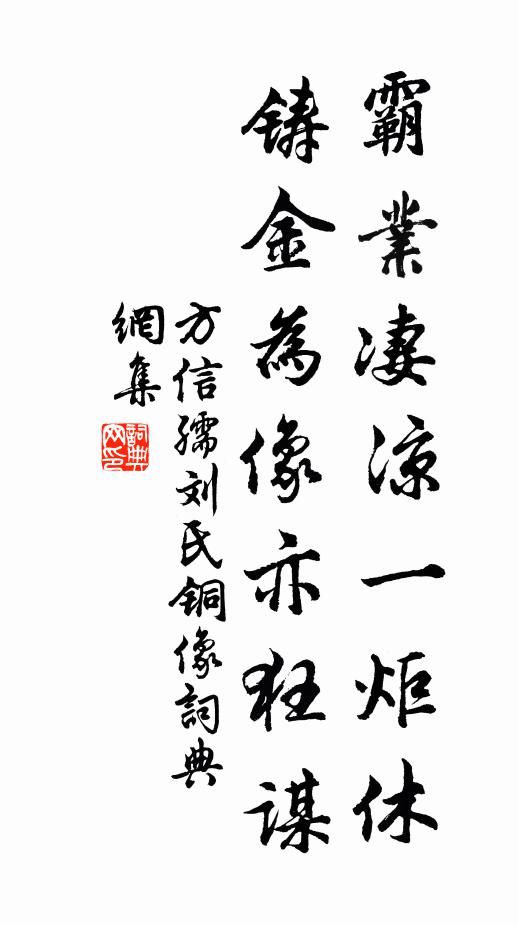 霸業凄涼一炬休
鑄金為像亦狂謀
方信孺刘氏銅像詞典
網集
詞典网印